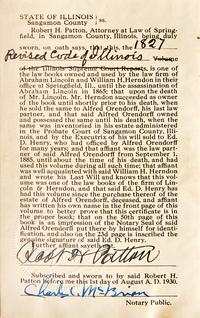 STATE OF ILLINOIS } ss.
Sangamon County }
Robert H. Patton, Attorney at Law of Spring-
field, in Sangamon County, Illinois, being duly
sworn, on oath says, that this, the 1827
Revised Code of Illinois Volume
of the Illinois Supreme Court Reports, is one of
the law books owned and used by the law firm of
Abraham Lincoln and William H. Herndon in their
office at Springfield, Ill., until the assassination of
Abraham Lincoln in 1865; that upon the death
of Mr. Lincoln, Mr. Herndon succeeded as owner
of the book until shortly prior to his death, when
he sold the same to Alfred Orendorff, his last law
partner, and that said Alfred Orendorff owned
and possessed the same until his death, when the
name was inventoried in his estate administered in
the Probate Court of Sangamon County, Illi-
nois, and by the Executrix of his will sold to Ed.
D. Henry, who had officed by Alfred Orendorff
for many years; and that affiant was the law part-
ner of said Alfred Orendorff from September 1,
1885, until about the time of his death, and had
used this volume during all such time; that affiant
was well acquainted with said William H. Herndon
and wrote his Last Will and knows that this vol-
ume was one of the law books of the firm of Lin-
coln & Herndon, and that said Ed. D. Henry has
said this volume since the purchase thereof of the
estate of Alfred Orendorff, deceased, and affiant
has written his own name in the front page of this
volume to better prove that this certificate is in
the proper book; that on the 50th page of this
book is an impression of the Notary Seal of said
Alfred Orendorff put there by himself for identi-
fication, and also on the 23d page is inserted the
genuine signature of said Ed. D. Henry.
Further affiant sayeth not.
Robt H Patton
Subscribed and sworn to by said Robert H.
Patton before me this 1st day of August A. D. 1930.
Notary Public.